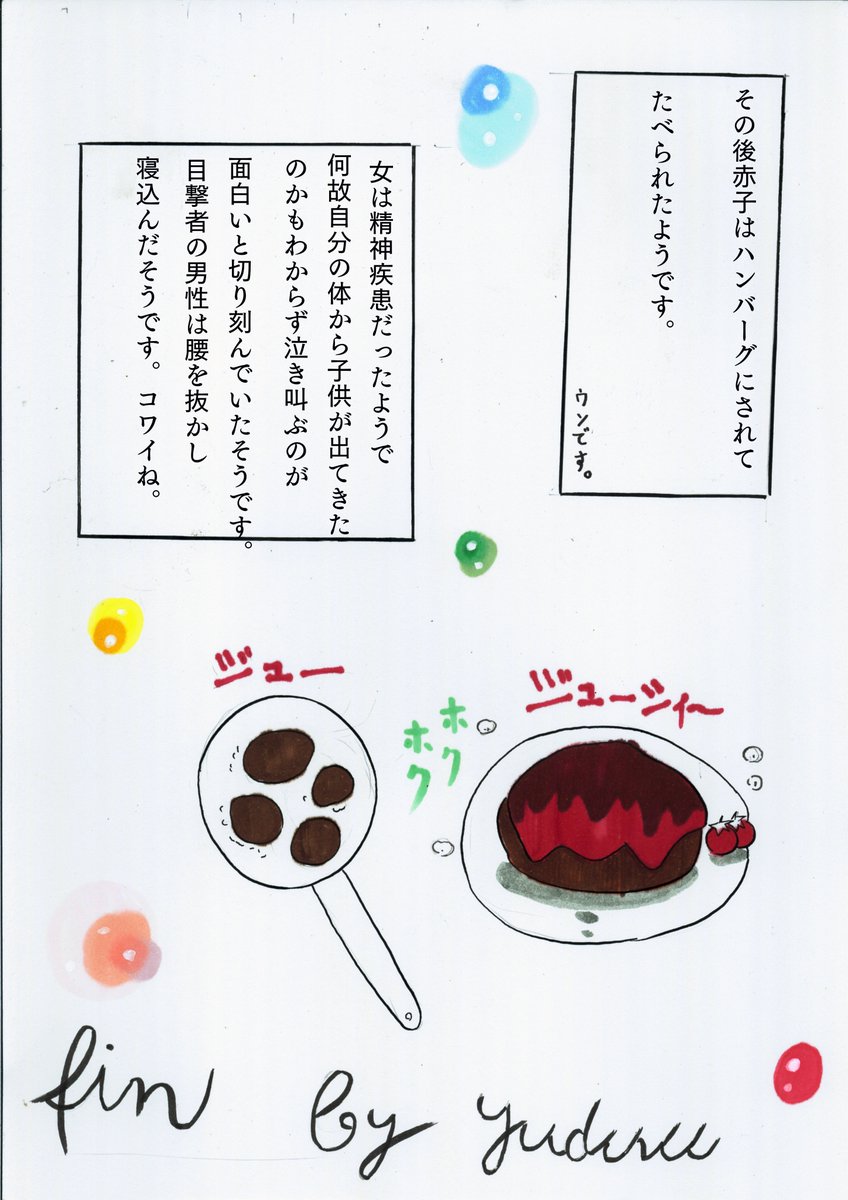 その後赤子はハンバーグにされて
たべられたようです。
ウンです。
女は精神疾患だったようで
何故自分の体から子供が出てきた
のかもわからず泣き叫ぶのが
面白いと切り刻んでいたそうです。
目撃者の男性は腰を抜かし
寝込んだそうです。コワイね。
ジューシィ〜
ホク
ホク
ジュー
fin
by